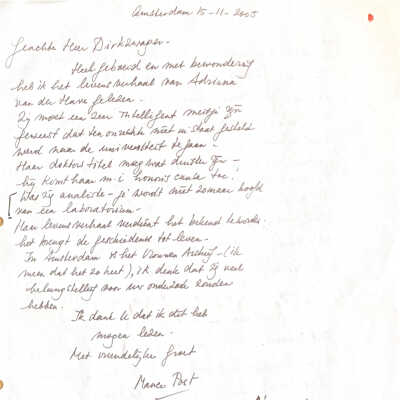 Amsterdam 15-11-2005
Geachte Heer Dirkzwager-
Heel geboeid en met bewondering
heb ik het levensverhaal van Adriana
van der Have gelezen.
Zij moet een zeer intelligent meisje zijn
geweest dat ten onrechte niet in staat gesteld
werd naar de universiteit te gaan-
Haar doktors titel mag wat duister zijn-
hij komt haar m.i. honoris causa toe!
Was zij analiste- je wordt niet zomaar hoofd
van een laboratorium-
Haar levensverhaal verdient het bekend te worden
het brengt de geschiedenis tot leven-
In Amsterdam is het Vrouwen Archief-(ik
meen dat het zo heet), ik denk dat zij veel
belangstelling voor uw onderzoek zouden
hebben.
Ik dank U dat ik dit heb
mogen lezen.
Met vriendelijke groet
Post